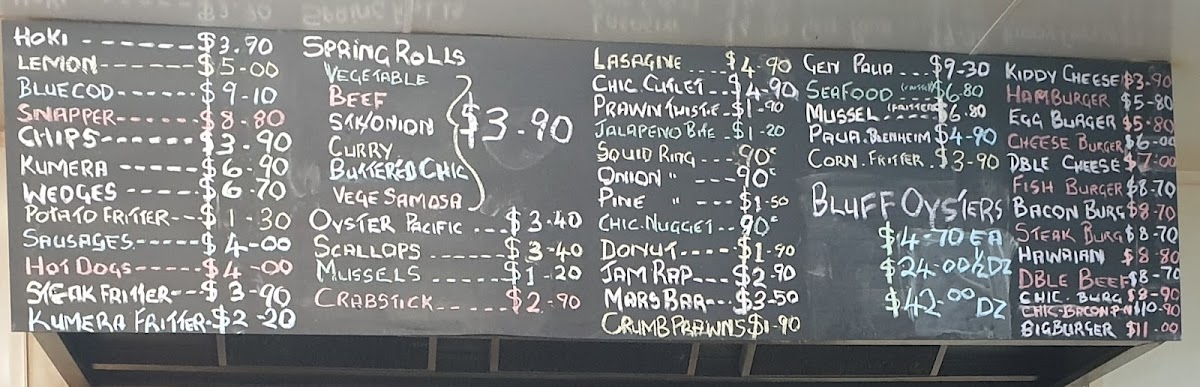 HOKI ------ $3.90
LEMON ------ $5-00
BLUECOD --- $9-10
SNAPPER ---- $8-80
CHIPS ------ $3-90
KUMERA ---- $6-90
WEDGES ----- $6-70
POTATO FRITTER -- $1-30
SAUSAGES ----- $4-00
HOT DOGS ----- $4-00
STEAK FRITTER --- $3-90
KUMERA FRITTER - $2-20
SPRING ROLLS
VEGETABLE
BEEF
STK/ONION
CURRY
BUTTERED CHIC
VEGE SAMOSA
$3-90
OYSTER PACIFIC ... $3.40
SCALLOPS ------ $3-40
MUSSELS ------ $1-20
CRABSTICK ------ $2-90
LASAGNE ... $4.90
CHIC CUTLET ... $4-90
PRAWN TWISTIE . $1-90
JALAPENO BITE . $1-20
SQUID RING --- 90c
ONION " --- 90c
PINE " -- $1-50
CHIC. NUGGET -- 90c
DONUT ---- $1-90
JAM RAP --- $2-90
MARS BAR --- $3-50
CRUMB PRAWNS $1-90
GEN PAUA ... $9-30
SEAFOOD $6.80
MUSSEL (FRITTERS) $6.80
PAUA. BLENHEIM $4-90
CORN. FRITTER . $3-90
BLUFF OYSTERS
$4-70 EA
$24.00 1/2 DZ
$42.00 DZ
KIDDY CHEESE $3-90
HAMBURGER $5-80
EGG BURGER $5-80
CHEESE BURGER $6-00
DBLE CHEESE $7-00
FISH BURGER $8-70
BACON BURG $8-70
STEAK BURG $8-70
HAWAIIAN $8-80
DBLE BEEF $8-70
CHIC. BURG $8-90
CHIC-BACON PN $10-90
BIGBURGER $11-00